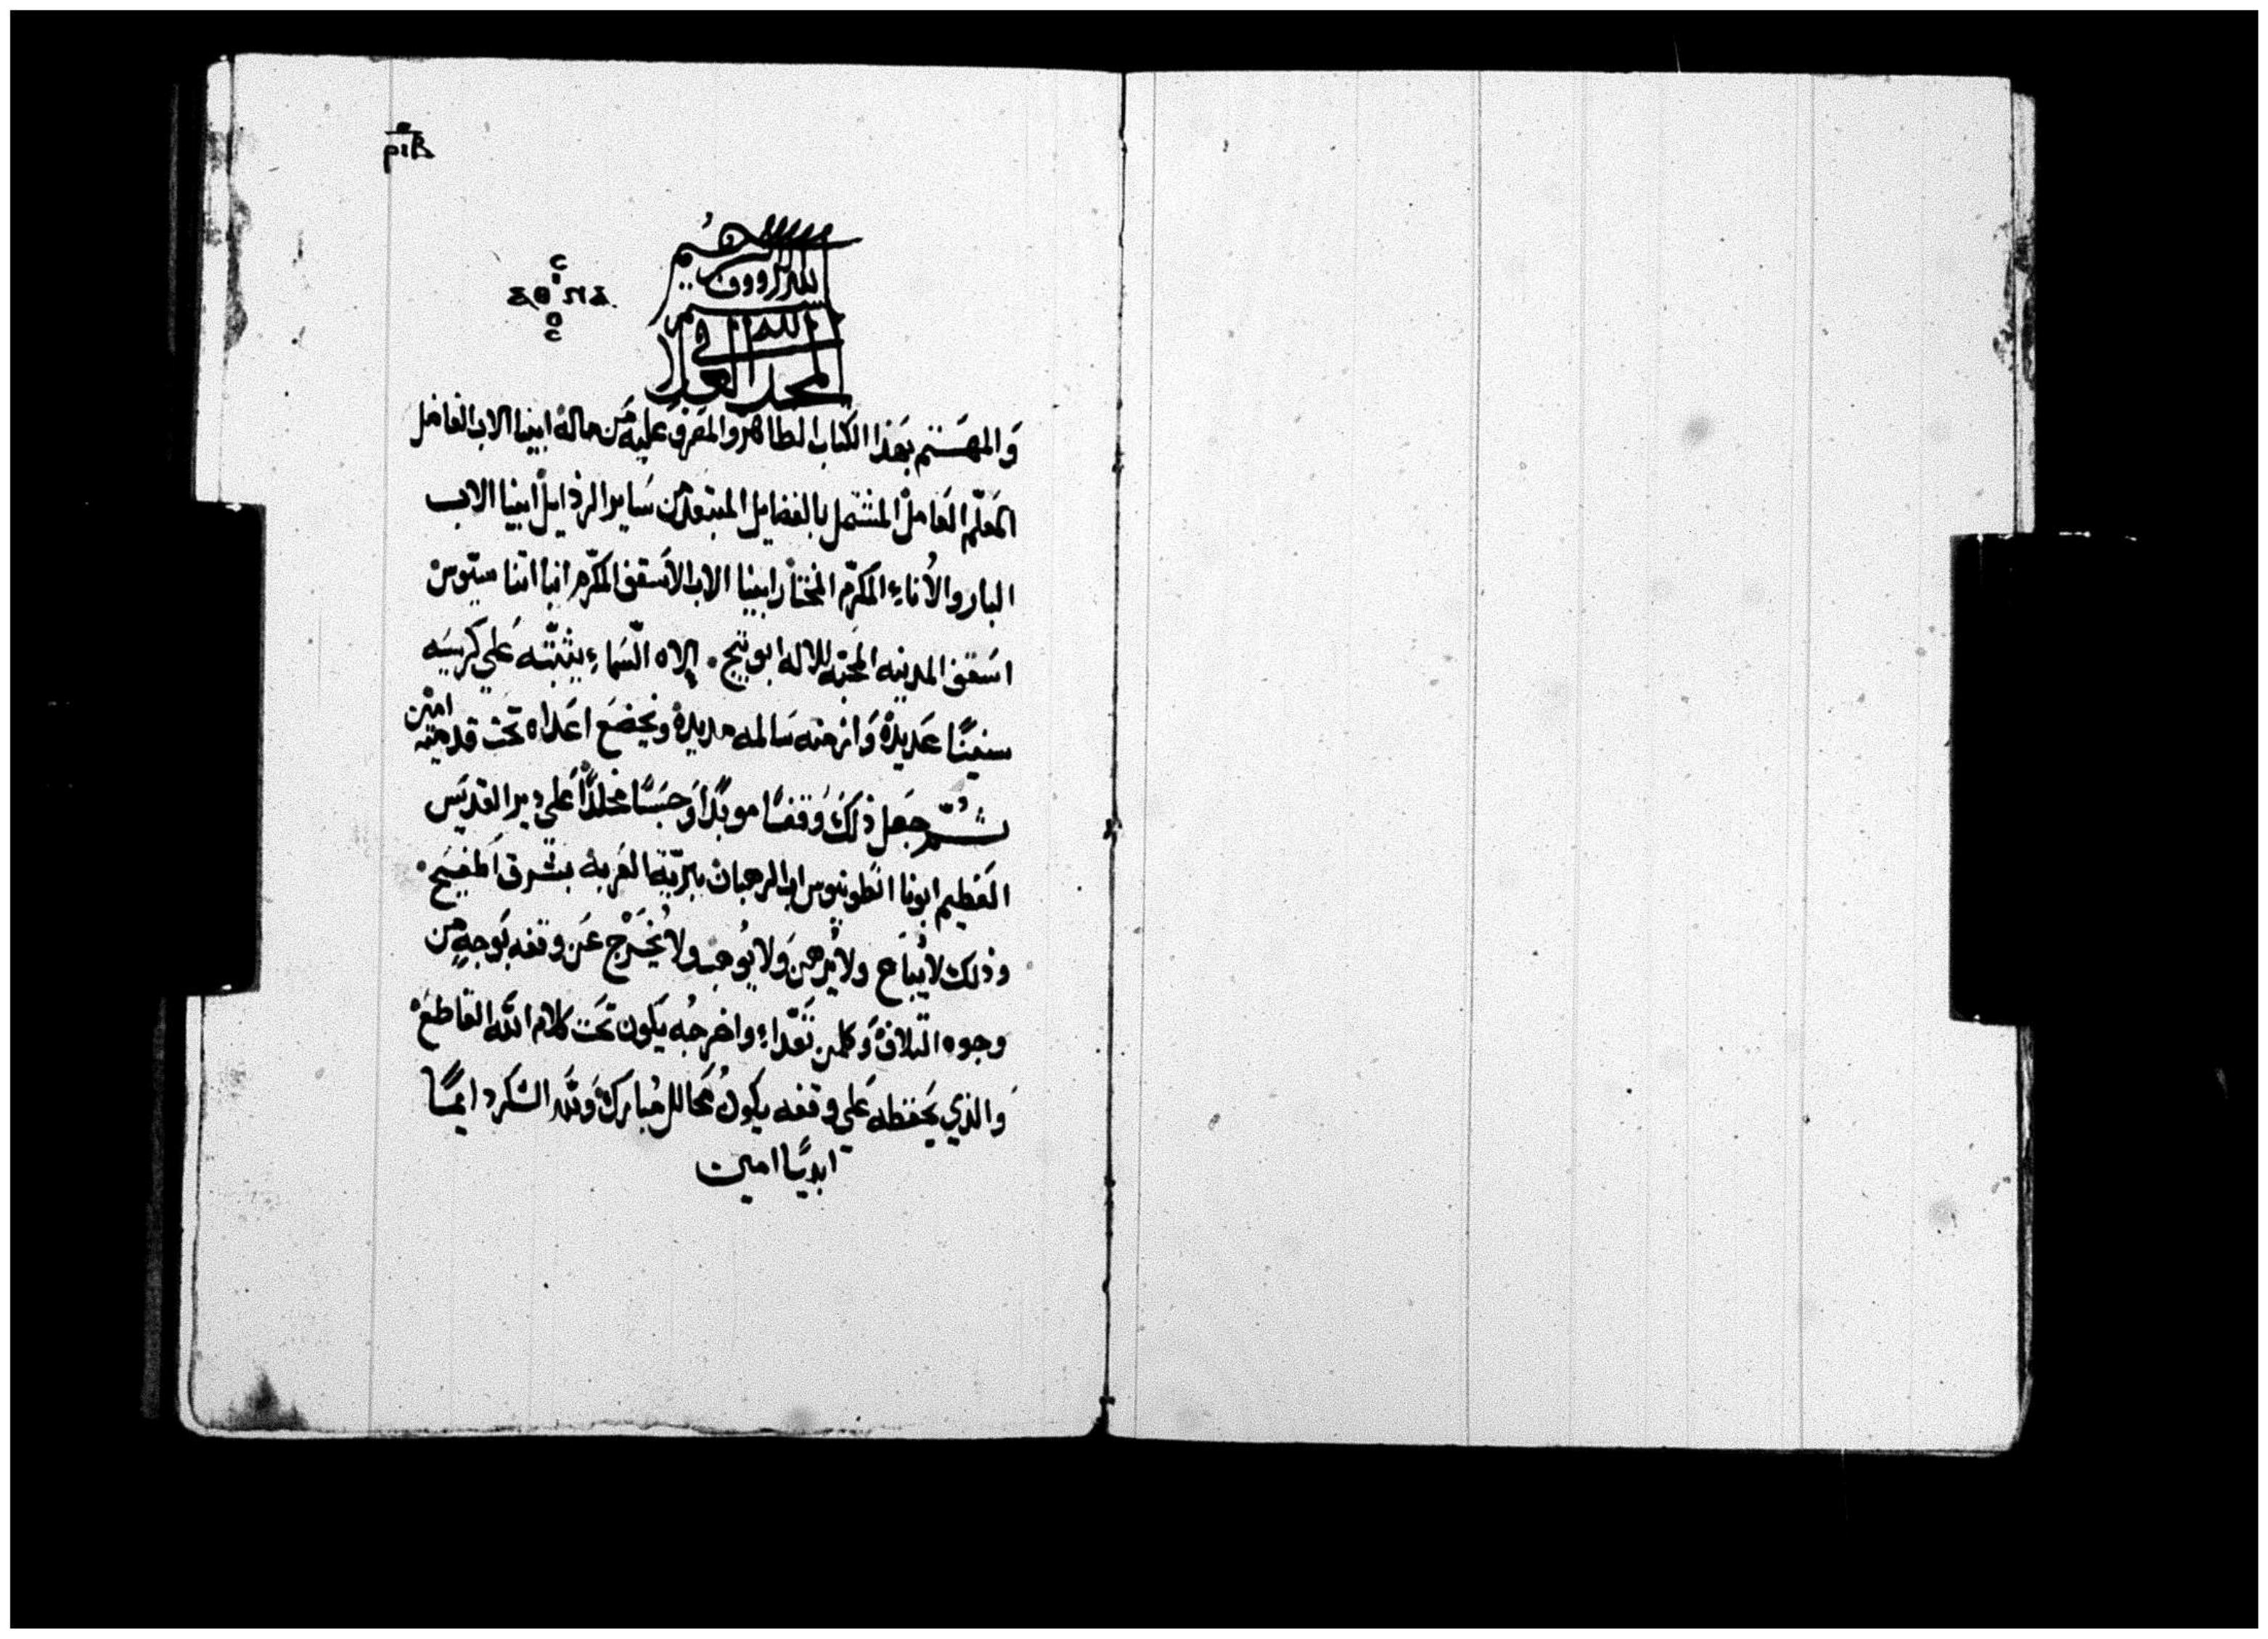 ⲣⲓⲃ
بسم الله الرووف الرحيم
المجد لله في العلا
وَالمهَتم بهَذا الكتاب الطاهر والمصَرف عَليه مَن ماله ابينا الاب الفاضل
المَعلّم العَامل المشتمل بالفضايل المبتعد من سَاير الرذايل ابينا الاب
البار والأناء المكرّم المختار ابينا الاب الاسَقف المكرّم انبا اتناسيّوس
اسَقف المدينه المحبّه للاله ابوتيج . إلاه السَّماء يثبّته عَلي كرسيَه
سنينًا عَديدة وَازمنه سَالمه مديدة ويخضَع اعَداه تحَت قدميَه امين
ثُمّ جَعل ذلكَ وَقفًا موبدًا وَحبَسًا مخلدًا عَلي دير القديَس
العَظيم ابونا انطونيوس اب الرهبان ببريّة العَربة بشرق اطفيَح .
وذلك لا يُباع ولا يُرهن وَلا يُوهب ولا يُخرَج عَن وقفه بَوجهٍ من
وجوه التلاف وَكلمن تعَدّاء واخرجُه يكَون تحَت كلام الله القاطعَ
وَالذي يحَفظه عَلي وقفه يكونُ محَالل مُبارَك وَلله الشكر دايمًا
ابديًا امين